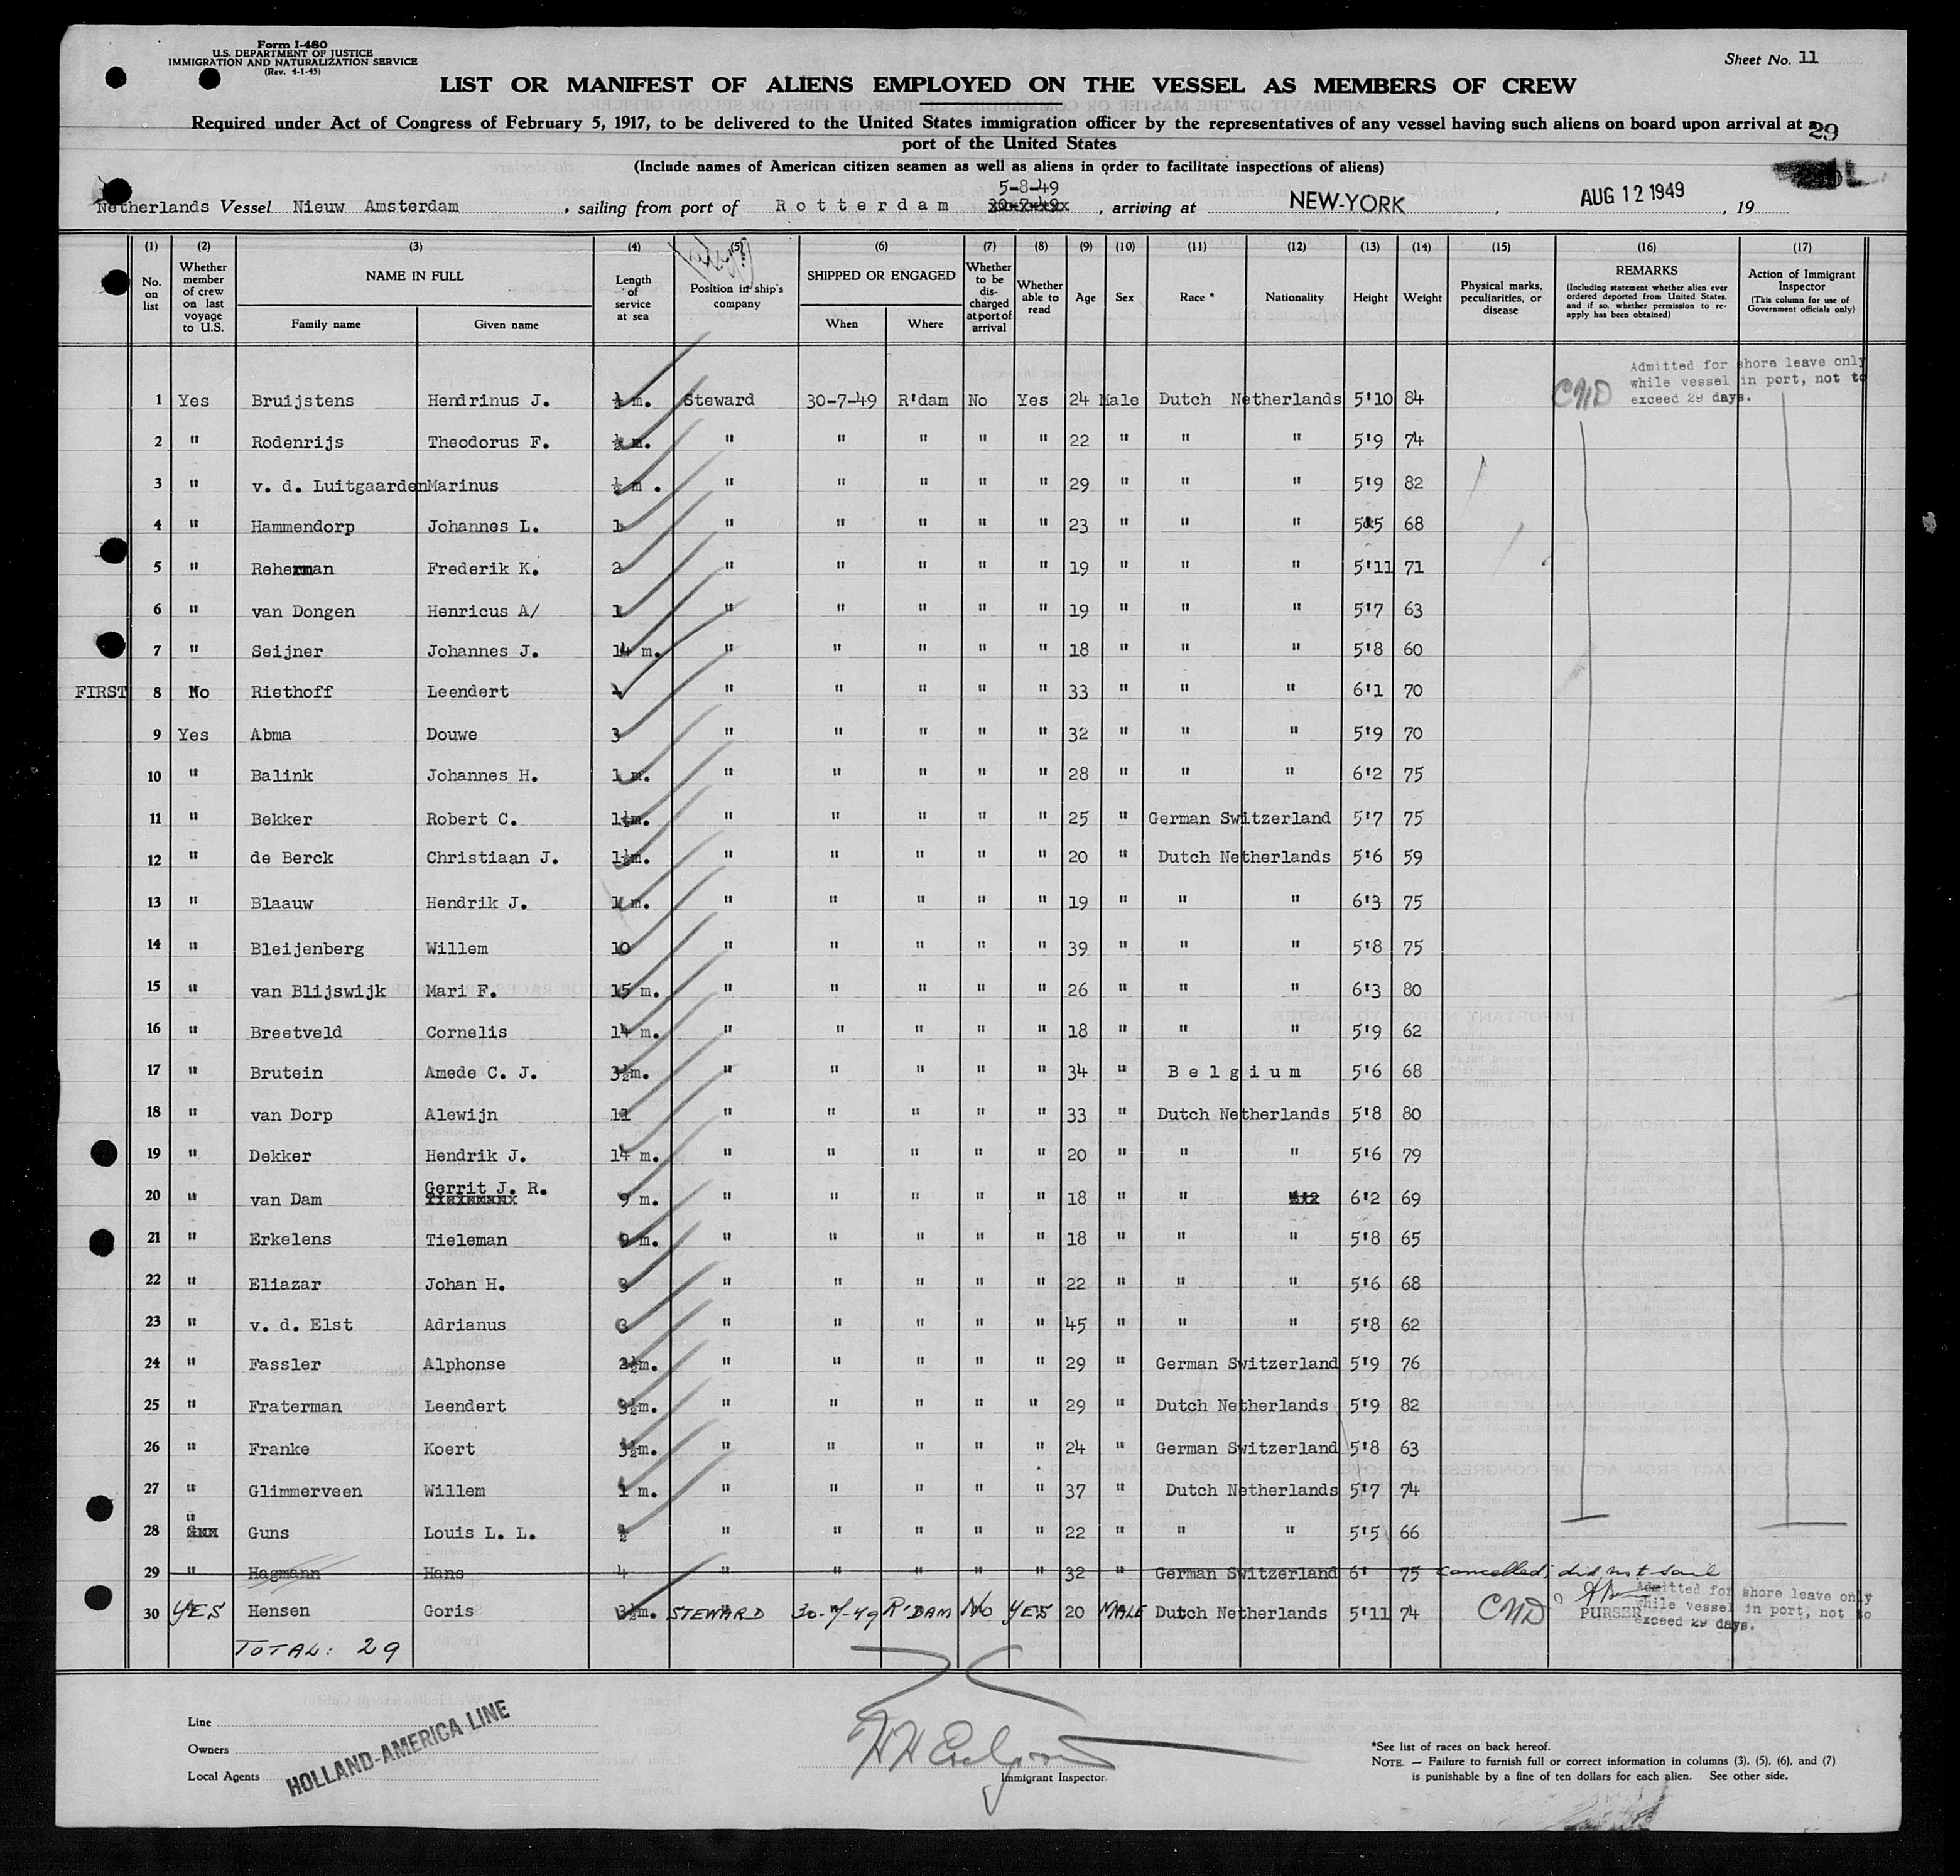 Form I-480
U.S. DEPARTMENT OF JUSTICE
IMMIGRATION AND NATURALIZATION SERVICE
(Rev. 4-1-45)
Sheet No. 11
LIST OR MANIFEST OF ALIENS EMPLOYED ON THE VESSEL AS MEMBERS OF CREW
Required under Act of Congress of February 5, 1917, to be delivered to the United States immigration officer by the representatives of any vessel having such aliens on board upon arrival at a
29
port of the United States
(Include names of American citizen seamen as well as aliens in order to facilitate inspections of aliens)
5-8-49
Netherlands Vessel Nieuw Amsterdam , sailing from port of Rotterdam 30-7-49 , arriving at NEW-YORK , AUG 12 1949 , 19
(1) (2) (3) (4) (5) (6) (7) (8) (9) (10) (11) (12) (13) (14) (15) (16) (17)
No. on list
Whether member of crew on last voyage to U.S.
NAME IN FULL
Family name Given name
Length of service at sea
Position in ship's company
SHIPPED OR ENGAGED
When Where
Whether to be discharged at port of arrival
Whether able to read
Age Sex Race * Nationality Height Weight
Physical marks, peculiarities, or disease
REMARKS
(Including statement whether alien ever ordered deported from United States, and if so, whether permission to re-apply has been obtained)
Action of Immigrant Inspector
(This column for use of Government officials only)
Admitted for shore leave only
while vessel in port, not to
exceed 29 days.
1 Yes Bruijstens Hendrinus J. ½ m. Steward 30-7-49 R'dam No Yes 24 Male Dutch Netherlands 5'10 84 CMD
2 " Rodenrijs Theodorus F. ½ m. " " " " " 22 " " " 5'9 74
3 " v. d. Luitgaarden Marinus ½ m . " " " " " 29 " " " 5'9 82
4 " Hammendorp Johannes L. 1 " " " " " 23 " " " 5'5 68
5 " Reherman Frederik K. 2 " " " " " 19 " " " 5'11 71
6 " van Dongen Henricus A/ 1 " " " " " 19 " " " 5'7 63
7 " Seijner Johannes J. 14 m. " " " " " 18 " " " 5'8 60
FIRST 8 No Riethoff Leendert " " " " " 33 " " " 6'1 70
9 Yes Abma Douwe 3 " " " " " 32 " " " 5'9 70
10 " Balink Johannes H. 1 m. " " " " " 28 " " " 6'2 75
11 " Bekker Robert C. 1½m. " " " " " 25 " German Switzerland 5'7 75
12 " de Berck Christiaan J. 1½m. " " " " " 20 " Dutch Netherlands 5'6 59
13 " Blaauw Hendrik J. 1 m. " " " " " 19 " " " 6'3 75
14 " Bleijenberg Willem 10 " " " " " 39 " " " 5'8 75
15 " van Blijswijk Mari F. 15 m. " " " " " 26 " " " 6'3 80
16 " Breetveld Cornelis 14 m. " " " " " 18 " " " 5'9 62
17 " Brutein Amede C. J. 3½m. " " " " " 34 " Belgium 5'6 68
18 " van Dorp Alewijn 11 " " " " " 33 " Dutch Netherlands 5'8 80
19 " Dekker Hendrik J. 14 m. " " " " " 20 " " " 5'6 79
20 " van Dam Gerrit J. R. 9 m. " " " " " 18 " " 6'2 69
21 " Erkelens Tieleman 9 m. " " " " " 18 " " " 5'8 65
22 " Eliazar Johan H. 9 " " " " " 22 " " " 5'6 68
23 " v. d. Elst Adrianus " " " " " 45 " " " 5'8 62
24 " Fassler Alphonse 2½m. " " " " " 29 " German Switzerland 5'9 76
25 " Fraterman Leendert 3½m. " " " " " 29 " Dutch Netherlands 5'9 82
26 " Franke Koert 3½m. " " " " " 24 " German Switzerland 5'8 63
27 " Glimmerveen Willem 1 m. " " " " " 37 " Dutch Netherlands 5'7 74
28 " Guns Louis L. L. ½ " " " " " 22 " " " 5'5 66
29 " Hagmann Hans 4 " " " " " 32 " German Switzerland 6' 75 cancelled; did not sail
30 YES Hensen Goris 3½m. STEWARD 30-7-49 R'DAM No YES 20 MALE Dutch Netherlands 5'11 74 CMD PURSER
Admitted for shore leave only
while vessel in port, not to
exceed 29 days.
TOTAL: 29
Line
Owners
Local Agents
HOLLAND-AMERICA LINE
Immigrant Inspector
*See list of races on back hereof.
NOTE. — Failure to furnish full or correct information in columns (3), (5), (6), and (7)
is punishable by a fine of ten dollars for each alien. See other side.